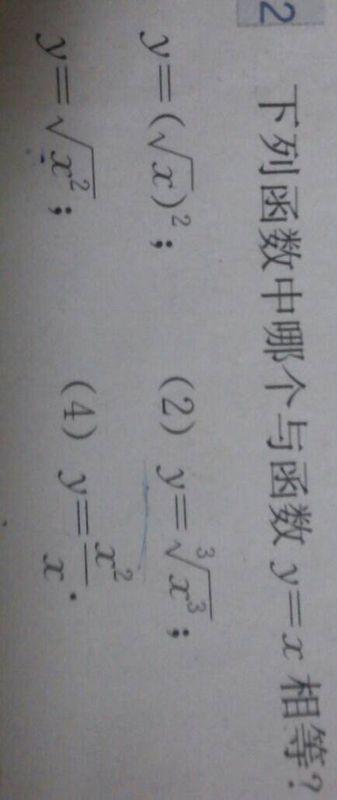 2
下列函数中哪个与函数 y=x 相等?
y=(√x)²; (2) y=∛x³;
y=√x²; (4) y=x²/x.